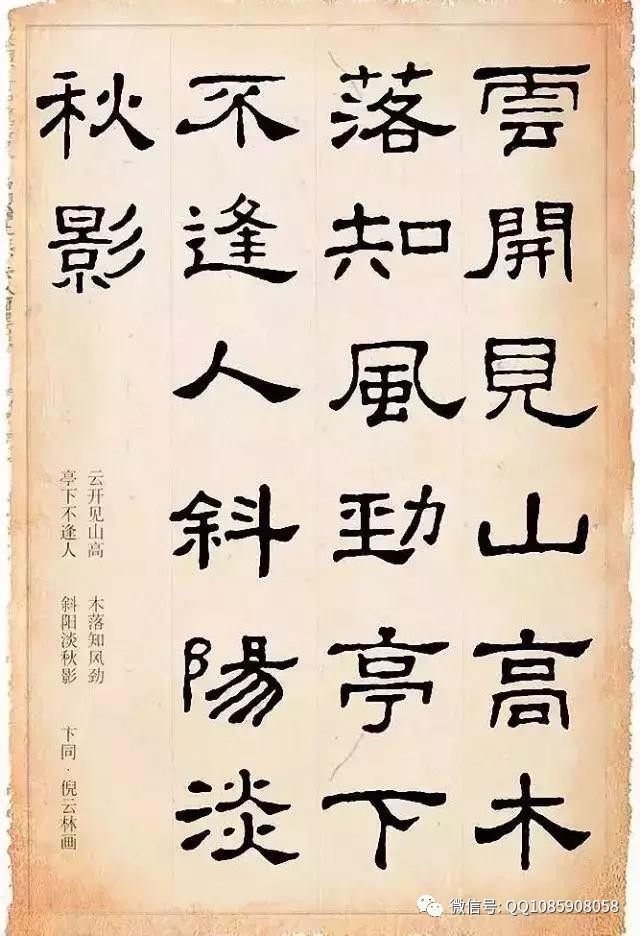 雲開見山高木
落知風勁亭下
不逢人斜陽淡
秋影
云开见山高 木落知风劲
亭下不逢人 斜阳淡秋影 卞同·倪云林画
微信号: QQ1085908058